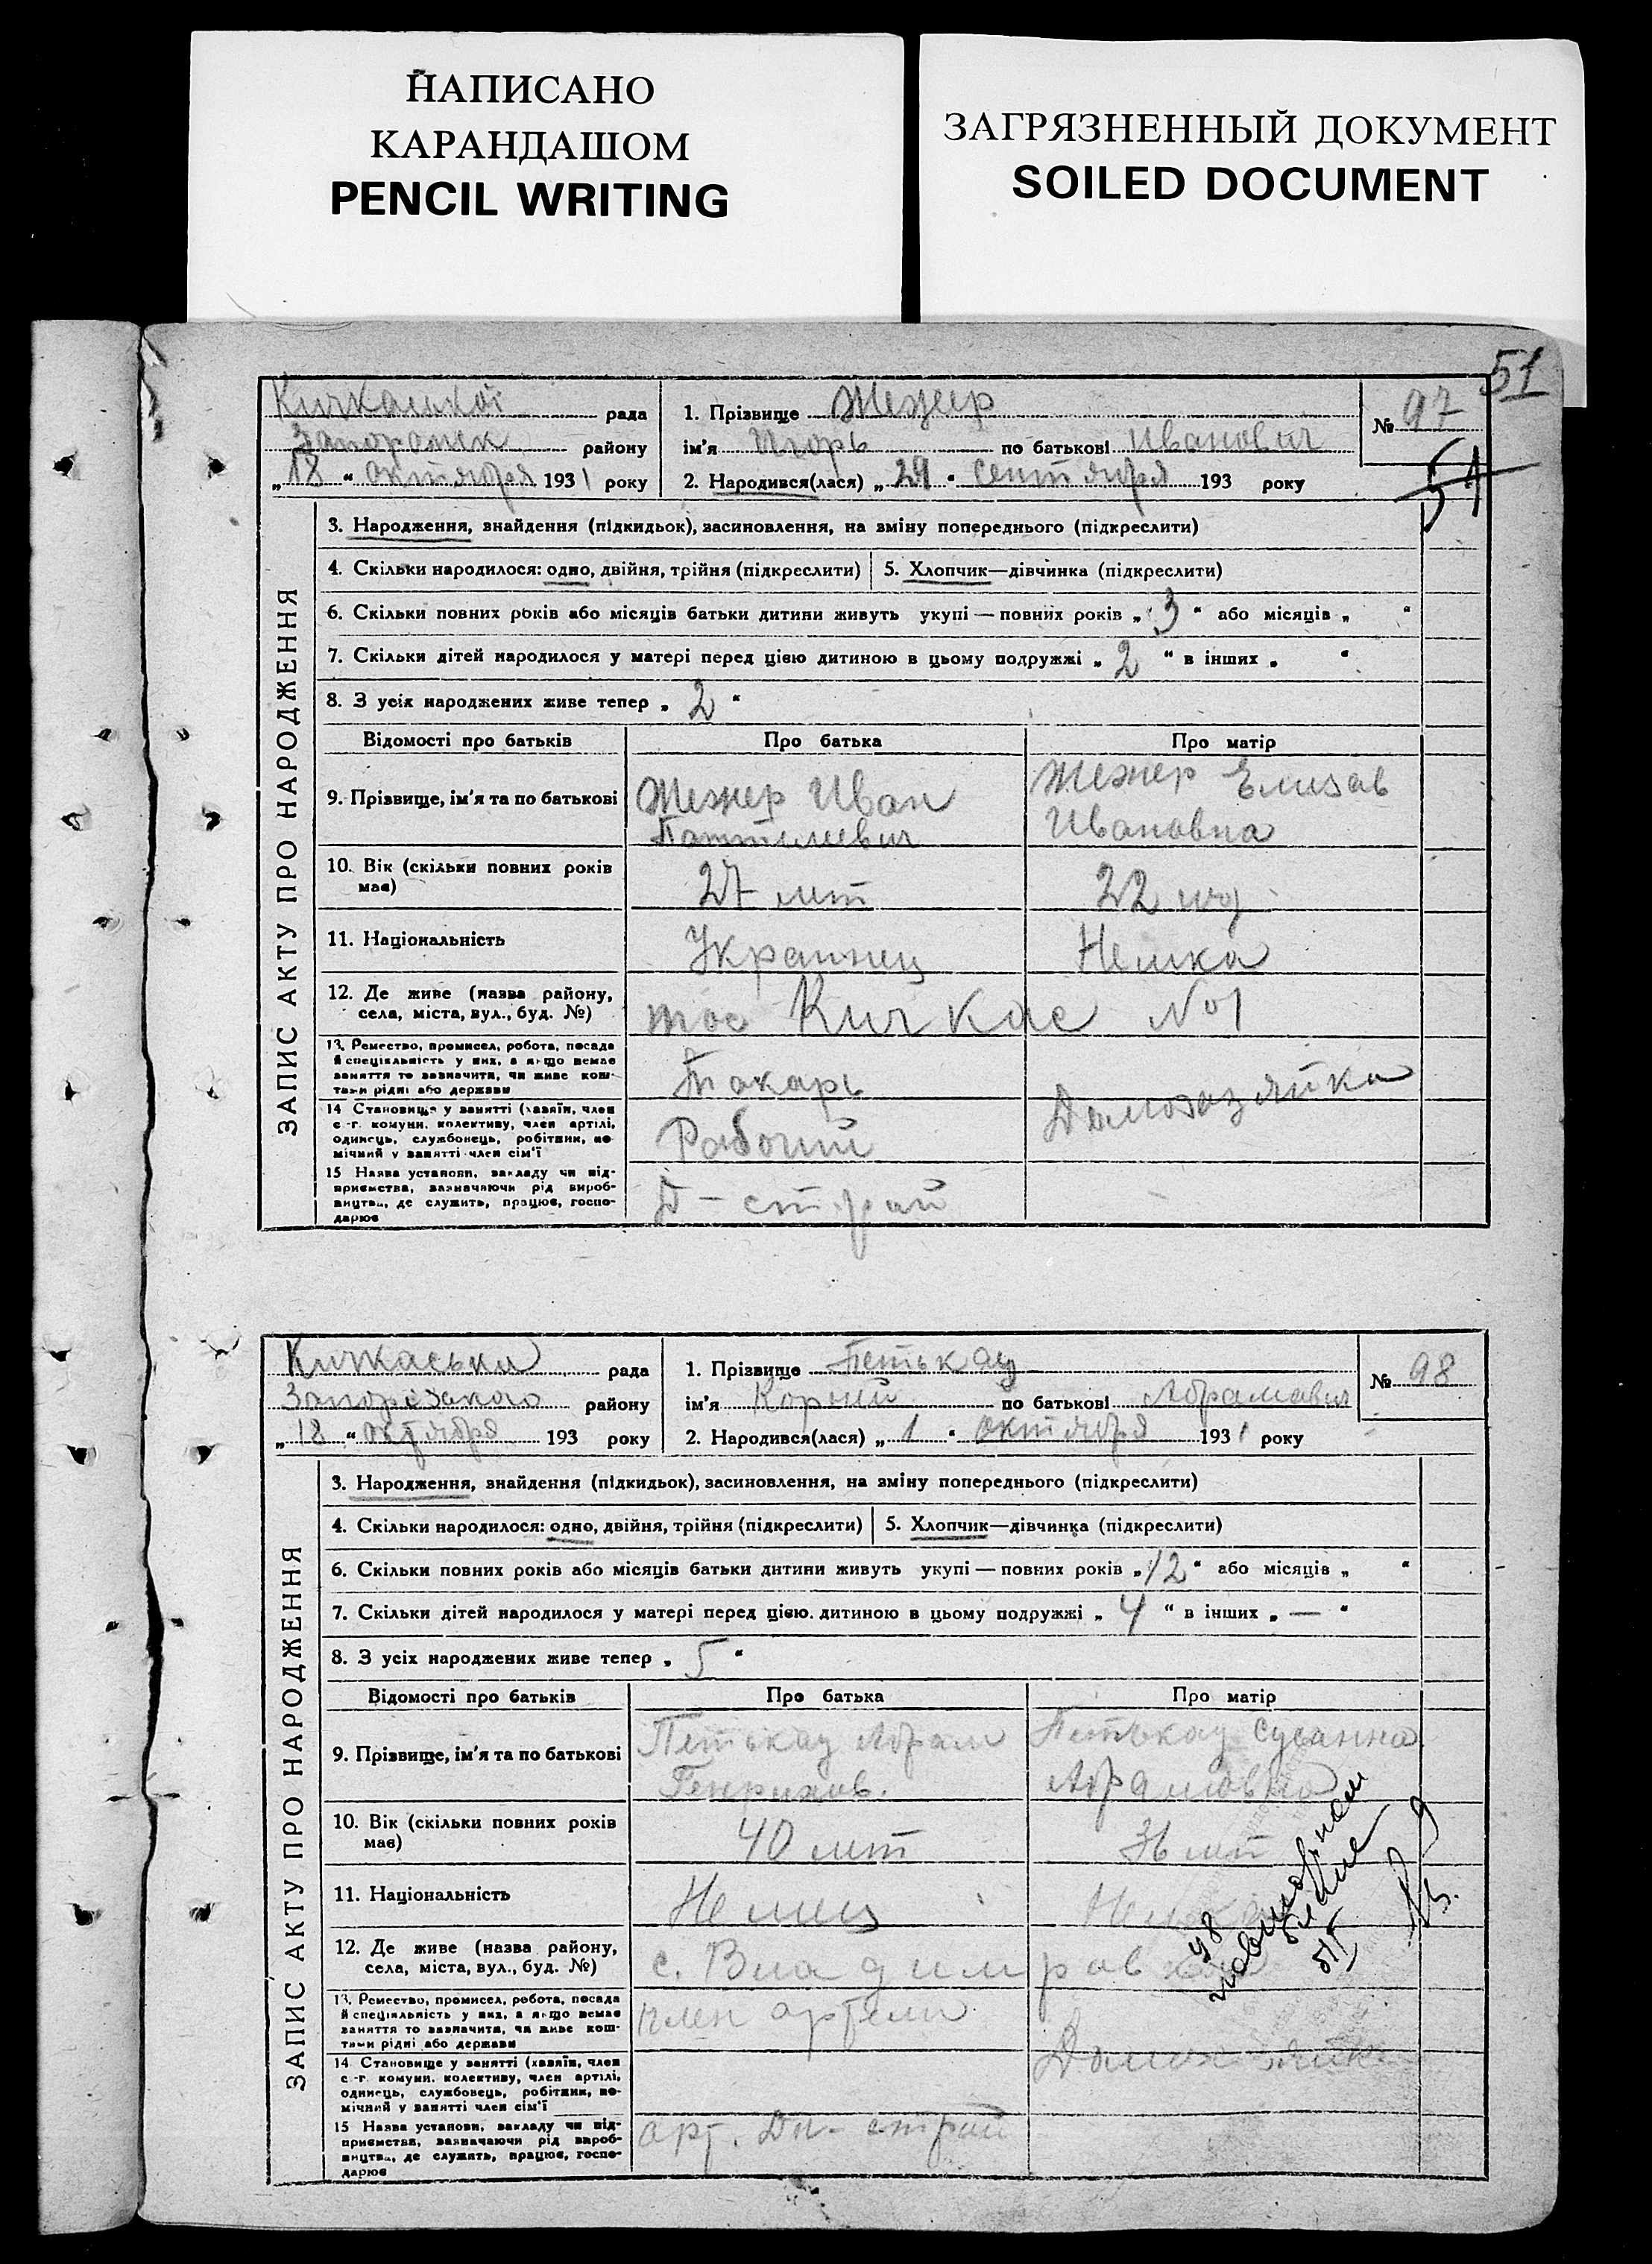 НАПИСАНО
КАРАНДАШОМ
PENCIL WRITING
ЗАГРЯЗНЕННЫЙ ДОКУМЕНТ
SOILED DOCUMENT
51
рада
Запорожск району
„18 “ октября 1931 року
1. Прізвище Межер
ім'я Игорь по батькові Иванович
2. Народився(лася) „29 “ сентября 193 року
№ 97
51
ЗАПИС АКТУ ПРО НАРОДЖЕННЯ
3. Народження, знайдення (підкидьок), засиновлення, на зміну попереднього (підкреслити)
4. Скільки народилося: одно, двійня, трійня (підкреслити) 5. Хлопчик—дівчинка (підкреслити)
6. Скільки повних років або місяців батьки дитини живуть укупі — повних років „ 3 “ або місяців „ “
7. Скільки дітей народилося у матері перед цією дитиною в цьому подружжі „ 2 “ в інших „ “
8. З усіх народжених живе тепер „ 2 “
Відомості про батьків Про батька Про матір
9. Прізвище, ім'я та по батькові Межер Иван Межер Елизав
Ивановна
10. Вік (скільки повних років має) 27 лет 22 год
11. Національність Украинец Немка
12. Де живе (назва району, села, міста, вул., буд. №) Кичкас №1
13. Ремество, промисел, робота, посада й спеціяльність у них, а якщо немає заняття то зазначити, чи живе коштами рідні або держави Токарь Домохозяйка
14 Становище у занятті (хазяїн, член с.-г. комуни, колективу, член артілі, одинець, службовець, робітник, помічний у занятті член сім'ї Рабочий
15 Назва установи, закладу чи підприємства, зазначаючи рід виробництва, де служить, працює, господарює Д-строй
Кичкаськи рада
Запорізького району
„18 “ октября 193 року
1. Прізвище Петькау
ім'я Корней по батькові Абрамович
2. Народився(лася) „ 1 “ октября 1931 року
№ 98
ЗАПИС АКТУ ПРО НАРОДЖЕННЯ
3. Народження, знайдення (підкидьок), засиновлення, на зміну попереднього (підкреслити)
4. Скільки народилося: одно, двійня, трійня (підкреслити) 5. Хлопчик—дівчинка (підкреслити)
6. Скільки повних років або місяців батьки дитини живуть укупі — повних років „12 “ або місяців „ “
7. Скільки дітей народилося у матері перед цією дитиною в цьому подружжі „ 4 “ в інших „ — “
8. З усіх народжених живе тепер „ 5 “
Відомості про батьків Про батька Про матір
9. Прізвище, ім'я та по батькові Петькау Абрам Петькау Сусанна
Генрихов. Абрамовна
10. Вік (скільки повних років має) 40 лет 36 лет
11. Національність Немец Немка
12. Де живе (назва району, села, міста, вул., буд. №) с. Владимровка
13. Ремество, промисел, робота, посада й спеціяльність у них, а якщо немає заняття то зазначити, чи живе коштами рідні або держави член артели
14 Становище у занятті (хазяїн, член с.-г. комуни, колективу, член артілі, одинець, службовець, робітник, помічний у занятті член сім'ї Домохозяйк
15 Назва установи, закладу чи підприємства, зазначаючи рід виробництва, де служить, працює, господарює арт. Дн-строй